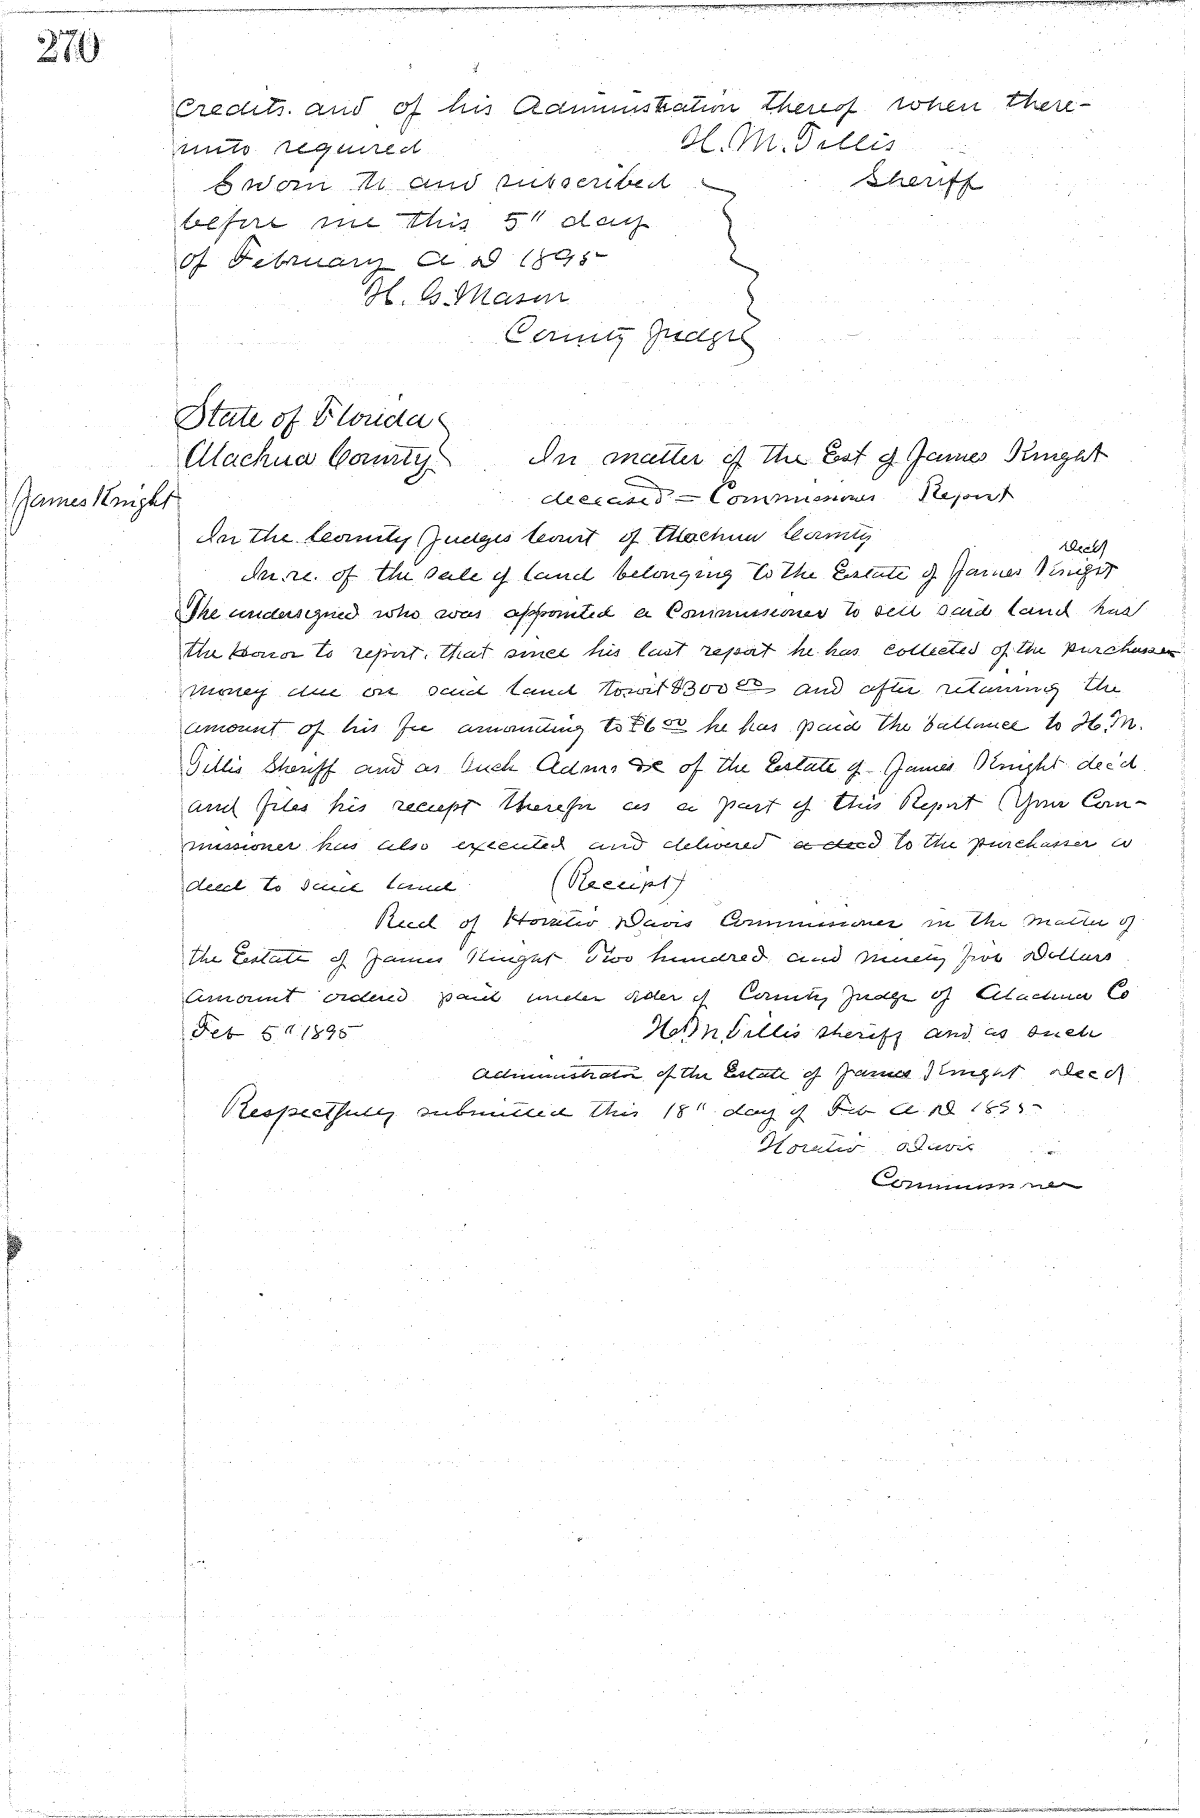 270
credits. and of his Administration thereof when there-
unto required H. M. Tillis
Sworn to and subscribed Sheriff
before me this 5" day
of February A D 1895
H. G. Mason
County Judge
State of Florida
Alachua County In matter of the Est of James Knight
James Knight deceased = Commissioners Report
In the County Judges Court of Alachua County
In. re. of the sale of land belonging to the Estate of James Knight Decd
The undersigned who was appointed a Commissioner to sell said land has
the honor to report, that since his last report he has collected of the purchasser
money due on said land towit $300 00 and after retaining the
amount of his fee amounting to $6 00 he has paid the ballance to H. M.
Tillis Sheriff and as such Admr de of the Estate of James Knight dec'd
and files his receipt therefor as a part of this Report (Your Com-
missioner has also executed and delivered a deed to the purchasser a
deed to said land (Receipt)
Recd of Horatio Davis Commissioner in the matter of
the Estate of James Knight Two hundred and ninety five Dollars
amount ordered paid under order of County Judge of Alachua Co
Feb 5" 1895 H. M. Tillis sheriff and as such
administrator of the Estate of James Knight Decd
Respectfully submitted this 18" day of Feb A D 1895
Horatio Davis
Commissioner